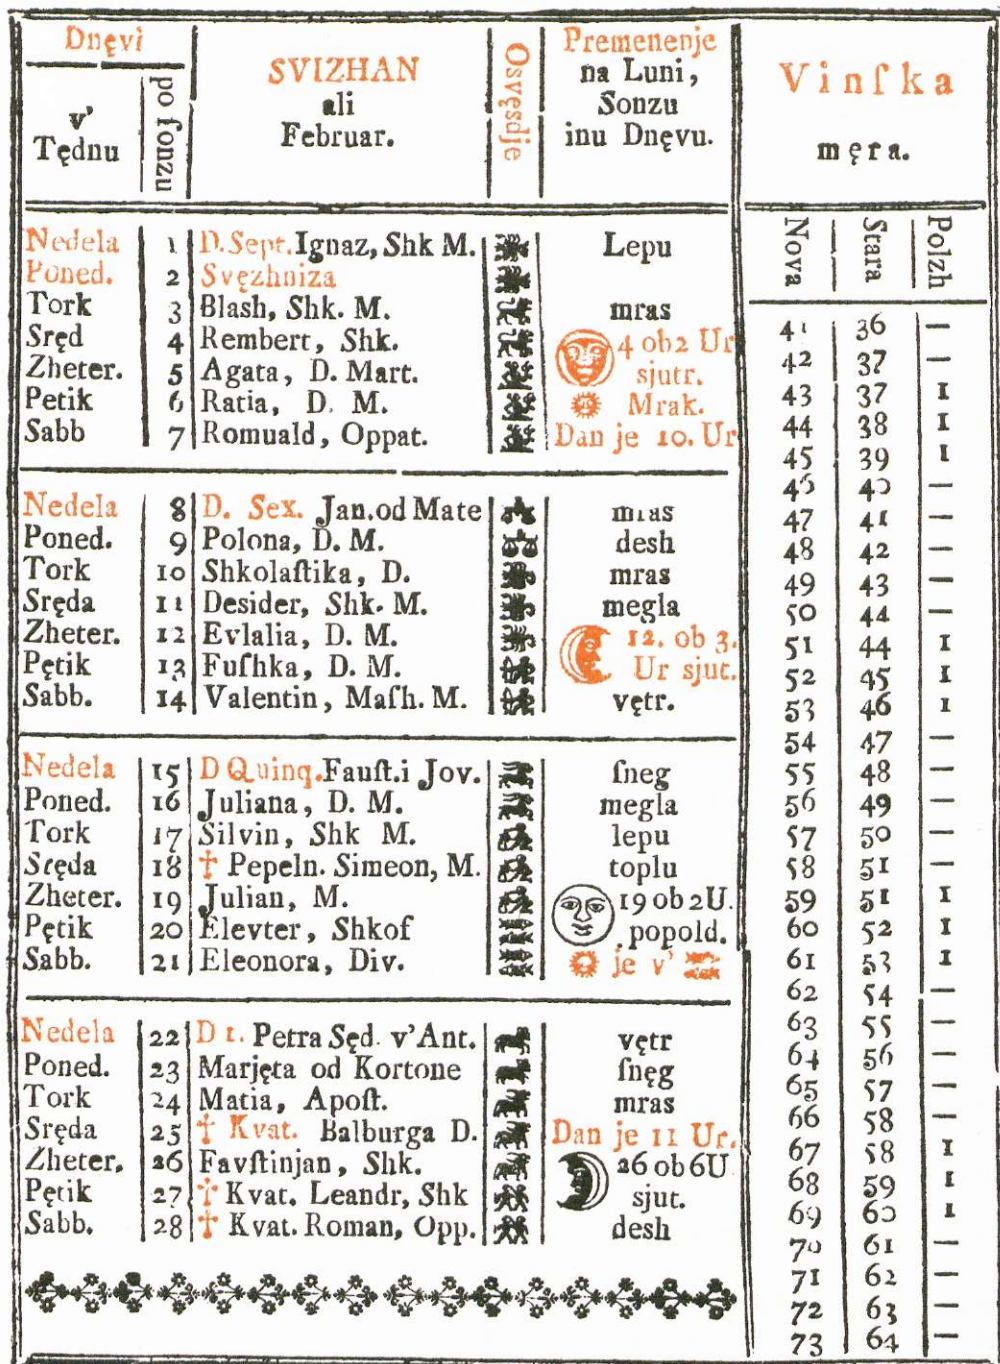 Dnęvi
v'
Tędnu
po ſonzu
SVIZHAN
ali
Februar.
Osvęsdje
Premenenje
na Luni,
Sonzu
inu Dnęvu.
Nedela 1 D. Sept. Ignaz, Shk M. Lepu
Poned. 2 Svęzhniza
Tork 3 Blash, Shk. M. mras
Sręd 4 Rembert, Shk. 4 ob 2 Ur
Zheter. 5 Agata, D. Mart. sjutr.
Petik 6 Ratia, D. M. Mrak.
Sabb 7 Romuald, Oppat. Dan je 10. Ur
Nedela 8 D. Sex. Jan. od Mate mras
Poned. 9 Polona, D. M. desh
Tork 10 Shkolaſtika, D. mras
Sręda 11 Desider, Shk. M. megla
Zheter. 12 Evlalia, D. M. 12. ob 3.
Pętik 13 Fuſhka, D. M. Ur sjut.
Sabb. 14 Valentin, Maſh. M. vętr.
Nedela 15 D Quinq. Fauſt. i Jov. ſneg
Poned. 16 Juliana, D. M. megla
Tork 17 Silvin, Shk M. lepu
Sręda 18 † Pepeln. Simeon, M. toplu
Zheter. 19 Julian, M. 19 ob 2 U.
Pętik 20 Elevter, Shkof popold.
Sabb. 21 Eleonora, Div. je v'
Nedela 22 D 1. Petra Sęd. v'Ant. vętr
Poned. 23 Marjęta od Kortone ſnęg
Tork 24 Matia, Apoſt. mras
Sręda 25 † Kvat. Balburga D. Dan je 11 Ur.
Zheter. 26 Favſtinjan, Shk. 26 ob 6 U
Pętik 27 † Kvat. Leandr, Shk sjut.
Sabb. 28 † Kvat. Roman, Opp. desh
Vinſka
męra.
Nova Stara Polzh
41 36 —
42 37 —
43 37 1
44 38 1
45 39 1
46 40 —
47 41 —
48 42 —
49 43 —
50 44 —
51 44 1
52 45 1
53 46 1
54 47 —
55 48 —
56 49 —
57 50 —
58 51 —
59 51 1
60 52 1
61 53 1
62 54 —
63 55 —
64 56 —
65 57 —
66 58 —
67 58 1
68 59 1
69 60 1
70 61 —
71 62 —
72 63 —
73 64 —